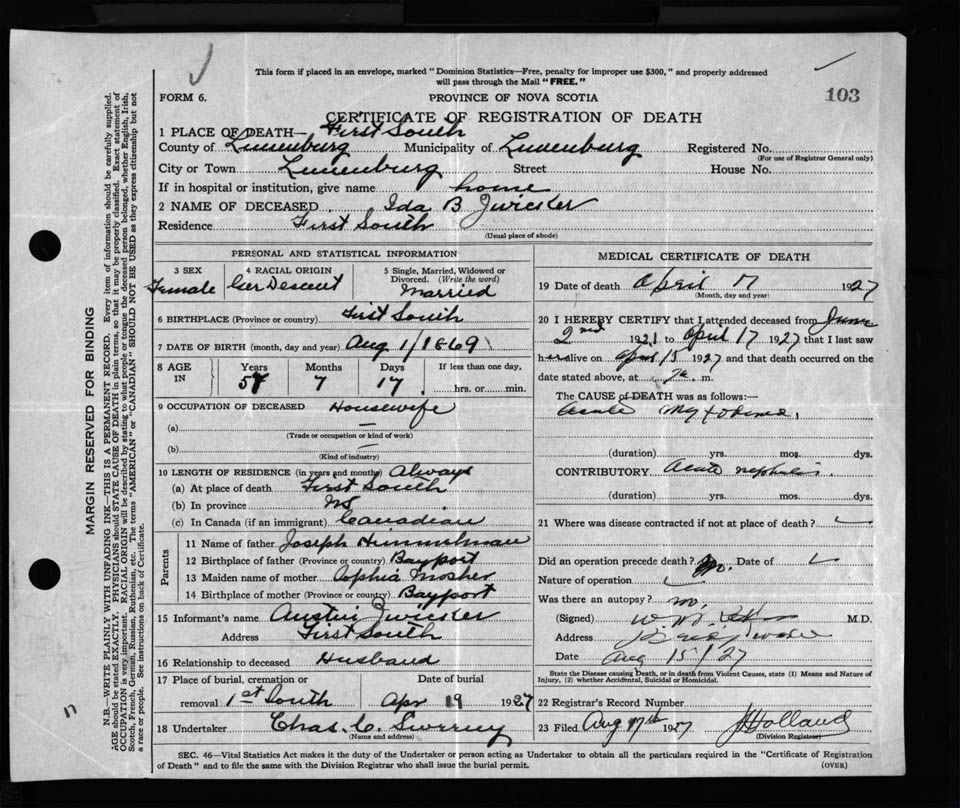 This form if placed in an envelope, marked "Dominion Statistics—Free, penalty for improper use $300," and properly addressed
will pass through the Mail "FREE."
FORM 6.
PROVINCE OF NOVA SCOTIA
103
CERTIFICATE OF REGISTRATION OF DEATH
1 PLACE OF DEATH— First South
County of Lunenburg Municipality of Lunenburg Registered No.
(For use of Registrar General only)
City or Town Lunenburg Street House No.
If in hospital or institution, give name home
2 NAME OF DECEASED Ida B Zwicker
Residence First South
(Usual place of abode)
PERSONAL AND STATISTICAL INFORMATION
3 SEX 4 RACIAL ORIGIN 5 Single, Married, Widowed or
Divorced. (Write the word)
Female Ger Descent Married
6 BIRTHPLACE (Province or country) First South
7 DATE OF BIRTH (month, day and year) Aug 1/1869
8 AGE IN Years Months Days If less than one day,
57 7 17 hrs. or min.
9 OCCUPATION OF DECEASED Housewife
(a) —
(Trade or occupation or kind of work)
(b) —
(Kind of industry)
10 LENGTH OF RESIDENCE (in years and months) Always
(a) At place of death First South
(b) In province NS
(c) In Canada (if an immigrant) Canadian
Parents
11 Name of father Joseph Himmelman
12 Birthplace of father (Province or country) Bayport
13 Maiden name of mother Sophia Mosher
14 Birthplace of mother (Province or country) Bayport
15 Informant's name Austin Zwicker
Address First South
16 Relationship to deceased Husband
17 Place of burial, cremation or Date of burial
removal 1st South Apr 19 1927
18 Undertaker Chas. C. Sweeny
(Name and address)
MEDICAL CERTIFICATE OF DEATH
19 Date of death April 17 1927
(Month, day and year)
20 I HEREBY CERTIFY that I attended deceased from June
2nd 1921 to April 17 1927 that I last saw
her alive on April 15 1927 and that death occurred on
date stated above, at m.
The CAUSE of DEATH was as follows:—
acute
(duration) yrs. mos. dys.
CONTRIBUTORY Acute nephritis
(duration) yrs. mos. dys.
21 Where was disease contracted if not at place of death?
Did an operation precede death? No. Date of
Nature of operation
Was there an autopsy? no.
(Signed) M.D.
Address
Date Aug 15/27
State the Disease causing Death, or in death from Violent Causes, state (1) Means and Nature of
Injury, (2) whether Accidental, Suicidal or Homicidal.
22 Registrar's Record Number
23 Filed Aug 17th 1927 Holland
(Division Registrar)
SEC. 46—Vital Statistics Act makes it the duty of the Undertaker or person acting as Undertaker to obtain all the particulars required in the "Certificate of Registration
of Death" and to file the same with the Division Registrar who shall issue the burial permit. (OVER)
MARGIN RESERVED FOR BINDING
N.B.—WRITE PLAINLY WITH UNFADING INK—THIS IS A PERMANENT RECORD. Every item of information should be carefully supplied.
AGE should be stated EXACTLY. PHYSICIANS should STATE CAUSE OF DEATH in plain terms, so that it may be properly classified. Exact statement of
OCCUPATION is very important. RACIAL ORIGIN will be described by stating to what people or tongue the deceased person belonged, whether English, Irish,
Scotch, French, German, Russian, Ruthenian, etc. The terms "AMERICAN" or "CANADIAN" SHOULD NOT BE USED as they express citizenship but not
a race or people. See instructions on back of Certificate.